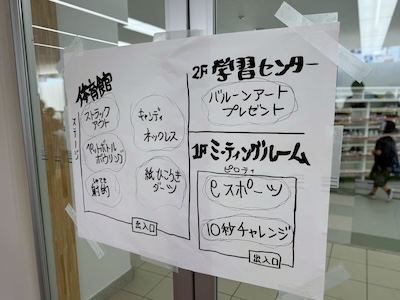 体育館
ステージ
ストラック
アウト
ペットボトル
ボウリング
射的
キャンディ
ネックレス
紙ひこうき
ダーツ
出入口
2F 学習センター
バルーンアート
プレゼント
1F ミーティングルーム
ピロティ
eスポーツ
10秒チャレンジ
出入口